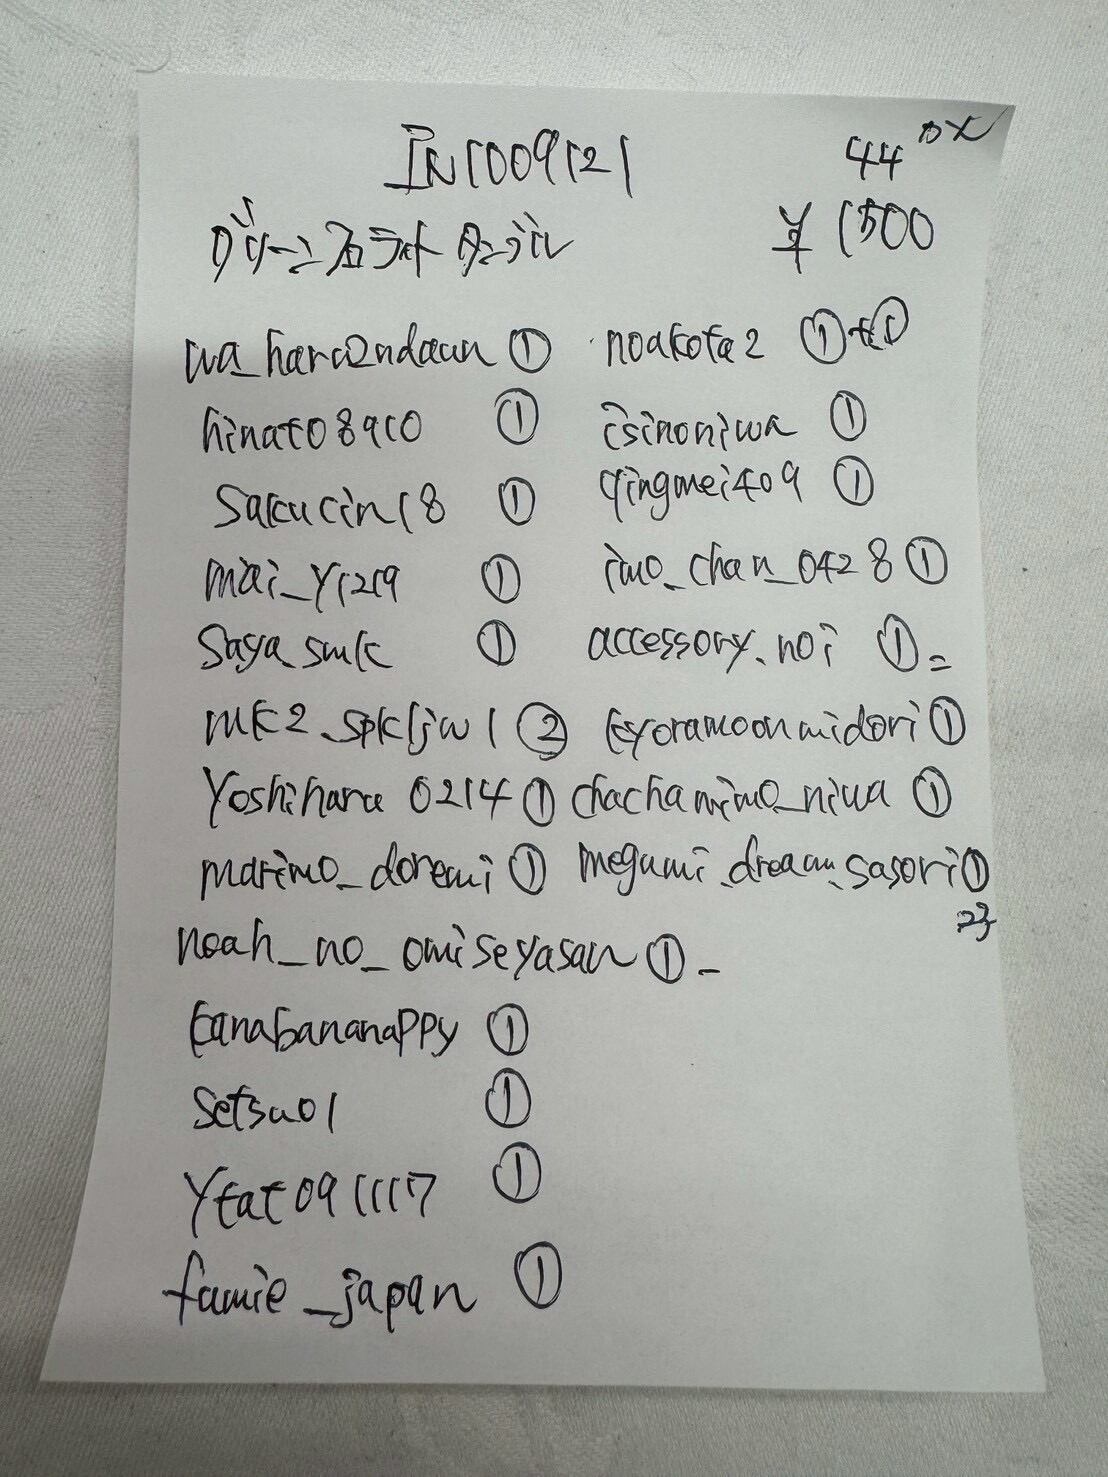 IN1009121
44 DX
グリーンフローライト タンブル
¥1500
wa_haru2ndaun ①
noakota2 ①+①
hinat08910 ①
isinoniwa ①
sakucin18 ①
qingmei409 ①
mai_y1219 ①
imo_chan_0428 ①
saya_smk ①
accessory.noi ①=
mk2_spkljw1 ②
kyoramoonmidori ①
yoshiharu 0214 ①
chachamimo_niwa ①
marimo_doremi ①
megumi.dream.sasori ①
23
noah_no_omiseyasan ① -
kanabananappy ①
setsu01 ①
ytat091117 ①
famie_japan ①